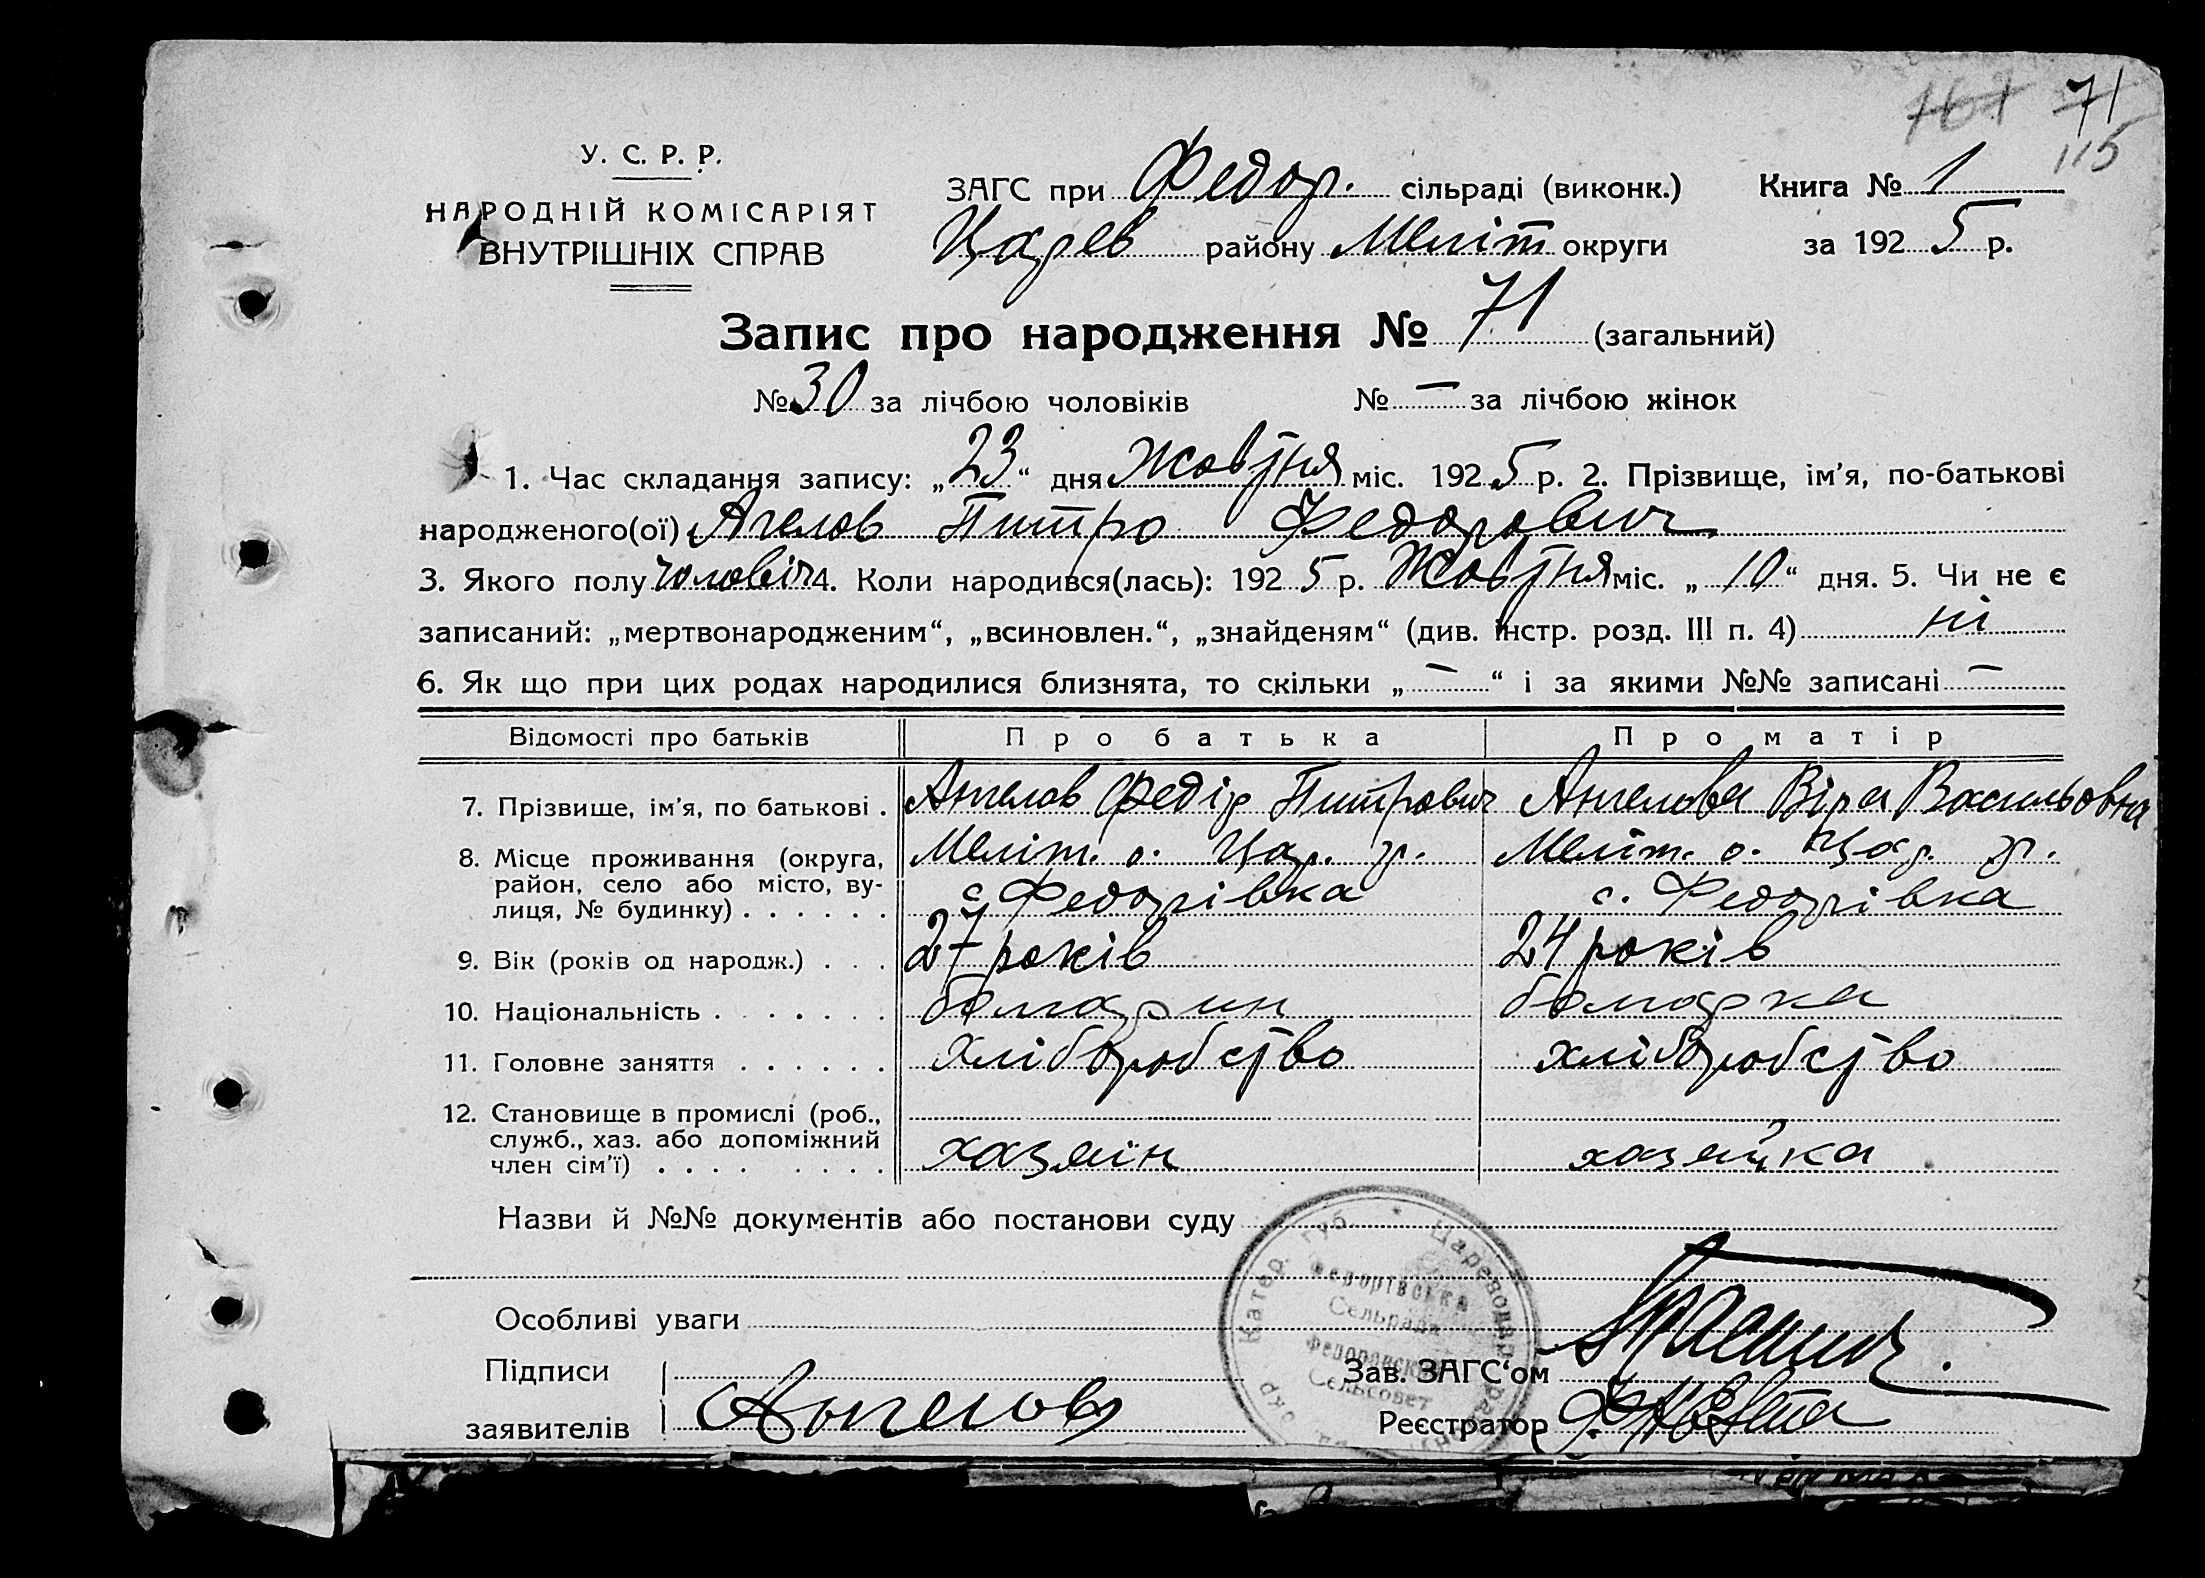 161 71
115
У. С. Р. Р.
НАРОДНІЙ КОМІСАРІЯТ
ВНУТРІШНІХ СПРАВ
ЗАГС при Федор. сільраді (виконк.) Книга № 1
Царев району Меліт округи за 1925 р.
Запис про народження № 71 (загальний)
№ 30 за лічбою чоловіків № — за лічбою жінок
1. Час складання запису: „23“ дня Жовтня міс. 1925 р. 2. Прізвище, ім'я, по-батькові
народженого(ої) Ангелов Питро Федорович
3. Якого полу чоловіч 4. Коли народився(лась): 1925 р. Жовтня міс. „10“ дня. 5. Чи не є
записаний: „мертвонародженим“, „всиновлен.“, „знайденям“ (див. інстр. розд. III п. 4) ні
6. Як що при цих родах народилися близнята, то скільки „—“ і за якими №№ записані —
Відомості про батьків Про батька Про матір
7. Прізвище, ім'я, по батькові . Ангелов Федір Питрович Ангелова Віра Васильовна
8. Місце проживання (округа, Меліт. о. Цар. р. Меліт. о. Цар. р.
район, село або місто, ву-
лиця, № будинку) . . . . . . с. Федорівка с. Федорівка
9. Вік (років од народж.) . . . 27 років 24 років
10. Національність . . . . . . . болгарин болгарка
11. Головне заняття . . . . . . хліборобство хліборобство
12. Становище в промислі (роб.,
служб., хаз. або допоміжний
член сім'ї) . . . . . . . . хазяїн хазяйка
Назви й №№ документів або постанови суду
Катер. губ. * Цареводар. рай
Федорівська
Сельрада
Федоровский
Сельсовет
Особливі уваги
Підписи Зав. ЗАГС'ом
заявителів Ангелов Реєстратор